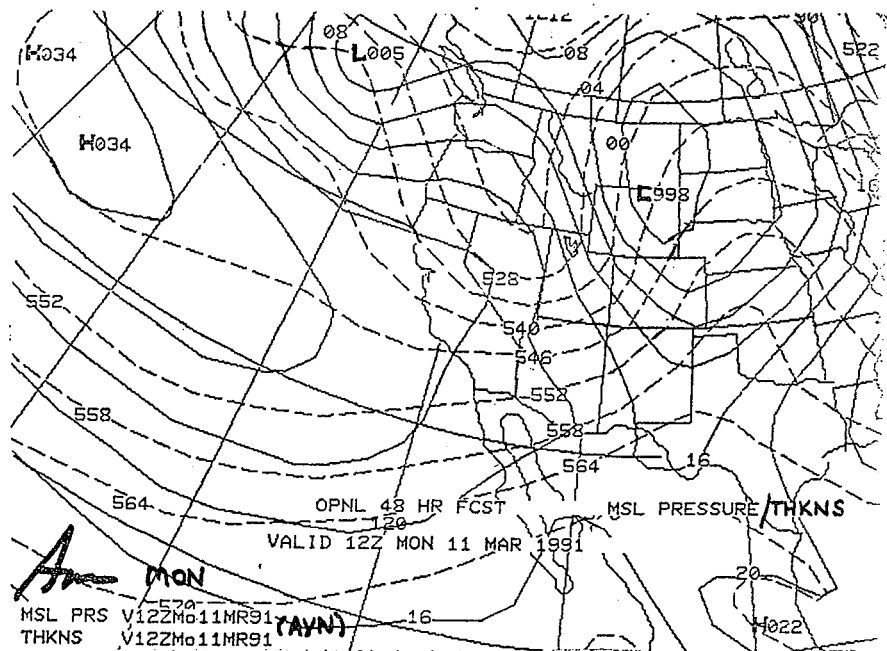 08
L005
1012
08
90
522
H034
04
H034
00
L998
528
552
540
546
552
558
558
564
16
564
OPNL 48 HR FCST MSL PRESSURE/THKNS
120
VALID 12Z MON 11 MAR 1991
MON
20
570
MSL PRS V12ZMo11MR91 (AVN) 16
H022
THKNS V12ZMo11MR91